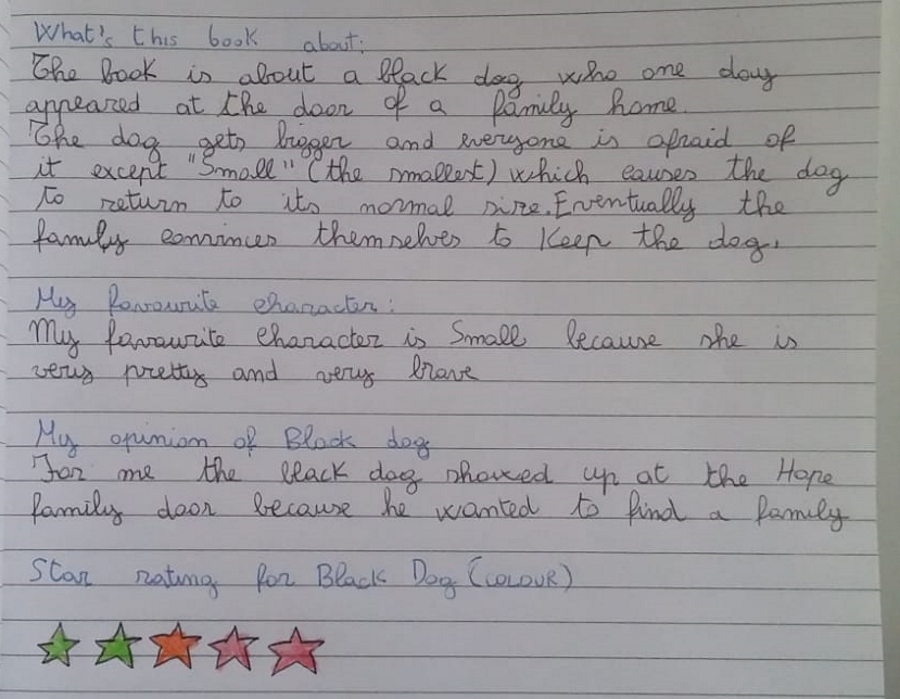 What's this book about:
The book is about a black dog who one day
appeared at the door of a family home.
The dog gets bigger and everyone is afraid of
it except "Small" (the smallest) which causes the dog
to return to its normal size. Eventually the
family convinces themselves to keep the dog.
My favourite character:
My favourite character is Small because she is
very pretty and very brave
My opinion of Black dog
For me the black dog showed up at the Hope
family door because he wanted to find a family
Star rating for Black Dog (COLOUR)